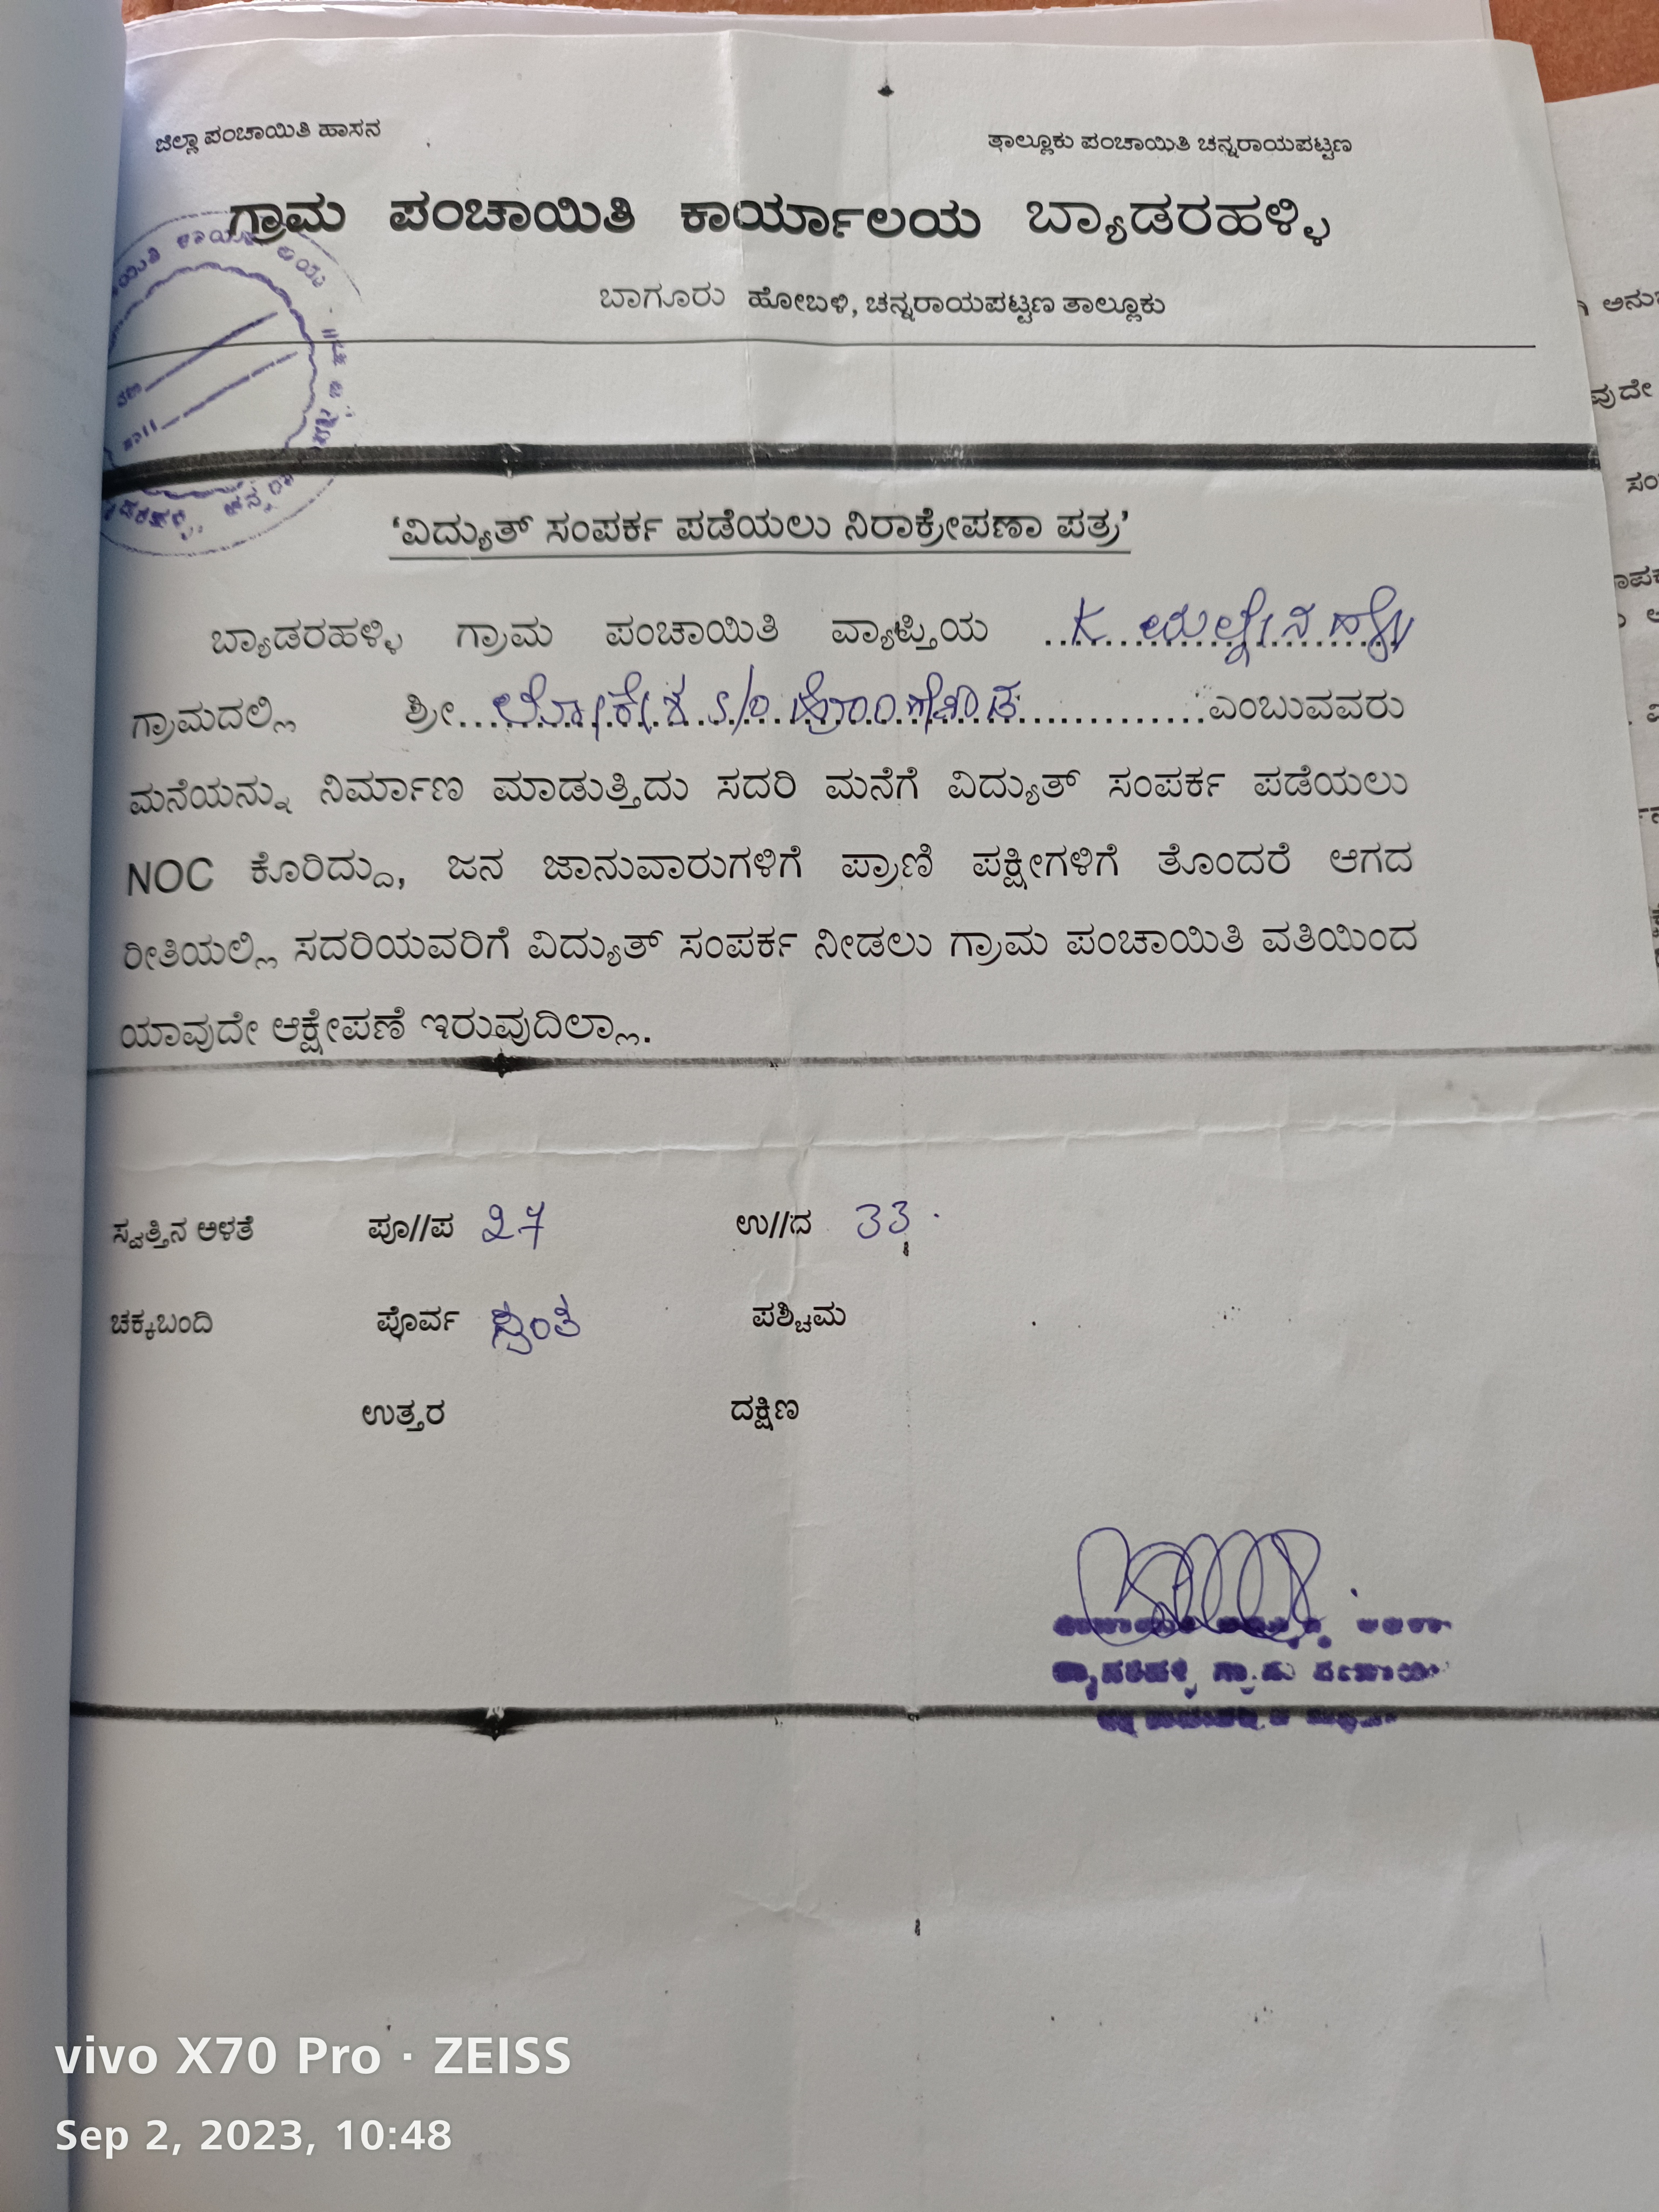 ಜಿಲ್ಲಾ ಪಂಚಾಯಿತಿ ಹಾಸನ
ತಾಲ್ಲೂಕು ಪಂಚಾಯಿತಿ ಚನ್ನರಾಯಪಟ್ಟಣ
ಗ್ರಾಮ ಪಂಚಾಯಿತಿ ಕಾರ್ಯಾಲಯ ಬ್ಯಾಡರಹಳ್ಳಿ
ಬಾಗೂರು ಹೋಬಳಿ, ಚನ್ನರಾಯಪಟ್ಟಣ ತಾಲ್ಲೂಕು
‘ವಿದ್ಯುತ್ ಸಂಪರ್ಕ ಪಡೆಯಲು ನಿರಾಕ್ರೇಪಣಾ ಪತ್ರ’
ಬ್ಯಾಡರಹಳ್ಳಿ ಗ್ರಾಮ ಪಂಚಾಯಿತಿ ವ್ಯಾಪ್ತಿಯ K
ಗ್ರಾಮದಲ್ಲಿ ಶ್ರೀ ಲೋಕೇಶ s/o ಎಂಬುವವರು
ಮನೆಯನ್ನು ನಿರ್ಮಾಣ ಮಾಡುತ್ತಿದು ಸದರಿ ಮನೆಗೆ ವಿದ್ಯುತ್ ಸಂಪರ್ಕ ಪಡೆಯಲು
NOC ಕೊರಿದ್ದು, ಜನ ಜಾನುವಾರುಗಳಿಗೆ ಪ್ರಾಣಿ ಪಕ್ಷೀಗಳಿಗೆ ತೊಂದರೆ ಆಗದ
ರೀತಿಯಲ್ಲಿ ಸದರಿಯವರಿಗೆ ವಿದ್ಯುತ್ ಸಂಪರ್ಕ ನೀಡಲು ಗ್ರಾಮ ಪಂಚಾಯಿತಿ ವತಿಯಿಂದ
ಯಾವುದೇ ಆಕ್ಷೇಪಣೆ ಇರುವುದಿಲ್ಲಾ.
ಸ್ವತ್ತಿನ ಅಳತೆ ಪೂ//ಪ 27 ಉ//ದ 33
ಚಕ್ಕಬಂದಿ ಪೊರ್ವ ಸ್ವಂತ ಪಶ್ಚಿಮ
ಉತ್ತರ ದಕ್ಷಿಣ
vivo X70 Pro · ZEISS
Sep 2, 2023, 10:48